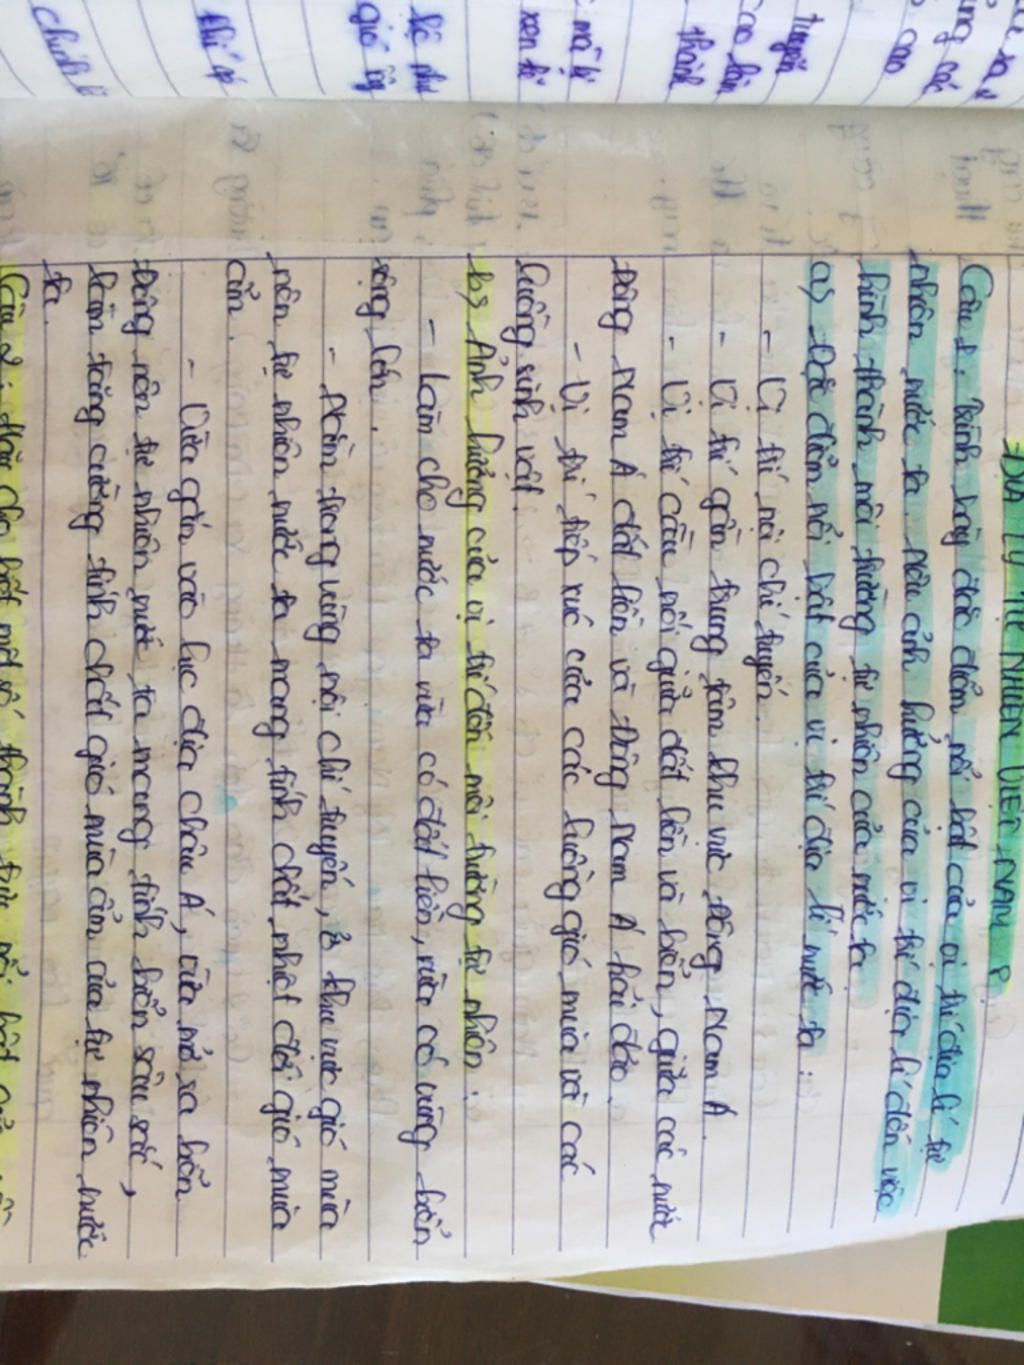 ĐỊA LÝ TỰ NHIÊN VIỆT NAM
Câu 1. Trình bày đặc điểm nổi bật của vị trí địa lí tự
nhiên nước ta. Nêu ảnh hưởng của vị trí địa lí đến việc
hình thành môi trường tự nhiên của nước ta.
a) Đặc điểm nổi bật của vị trí địa lí nước ta:
- Vị trí nội chí tuyến.
- Vị trí gần trung tâm khu vực Đông Nam Á.
- Vị trí cầu nối giữa đất liền và biển, giữa các nước
Đông Nam Á đất liền và Đông Nam Á hải đảo.
- Vị trí tiếp xúc của các luồng gió mùa và các
luồng sinh vật.
b) Ảnh hưởng của vị trí đến môi trường tự nhiên:
- Làm cho nước ta vừa có đất liền, vừa có vùng biển
rộng lớn.
- Nằm trong vùng nội chí tuyến, ở khu vực gió mùa
nên tự nhiên nước ta mang tính chất nhiệt đới gió mùa
ẩm.
- Vừa gắn vào lục địa châu Á, vừa mở ra biển
Đông nên tự nhiên nước ta mang tính biển sâu sắc,
làm tăng cường tính chất gió mùa ẩm của tự nhiên nước
ta.
Câu 2: Hãy cho biết một số thành tựu nổi bật